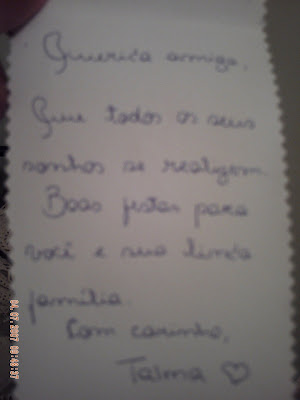 Querida amiga,
Que todos os seus
sonhos se realizem.
Boas festas para
você e sua linda
família.
Com carinho,
Talma ♡